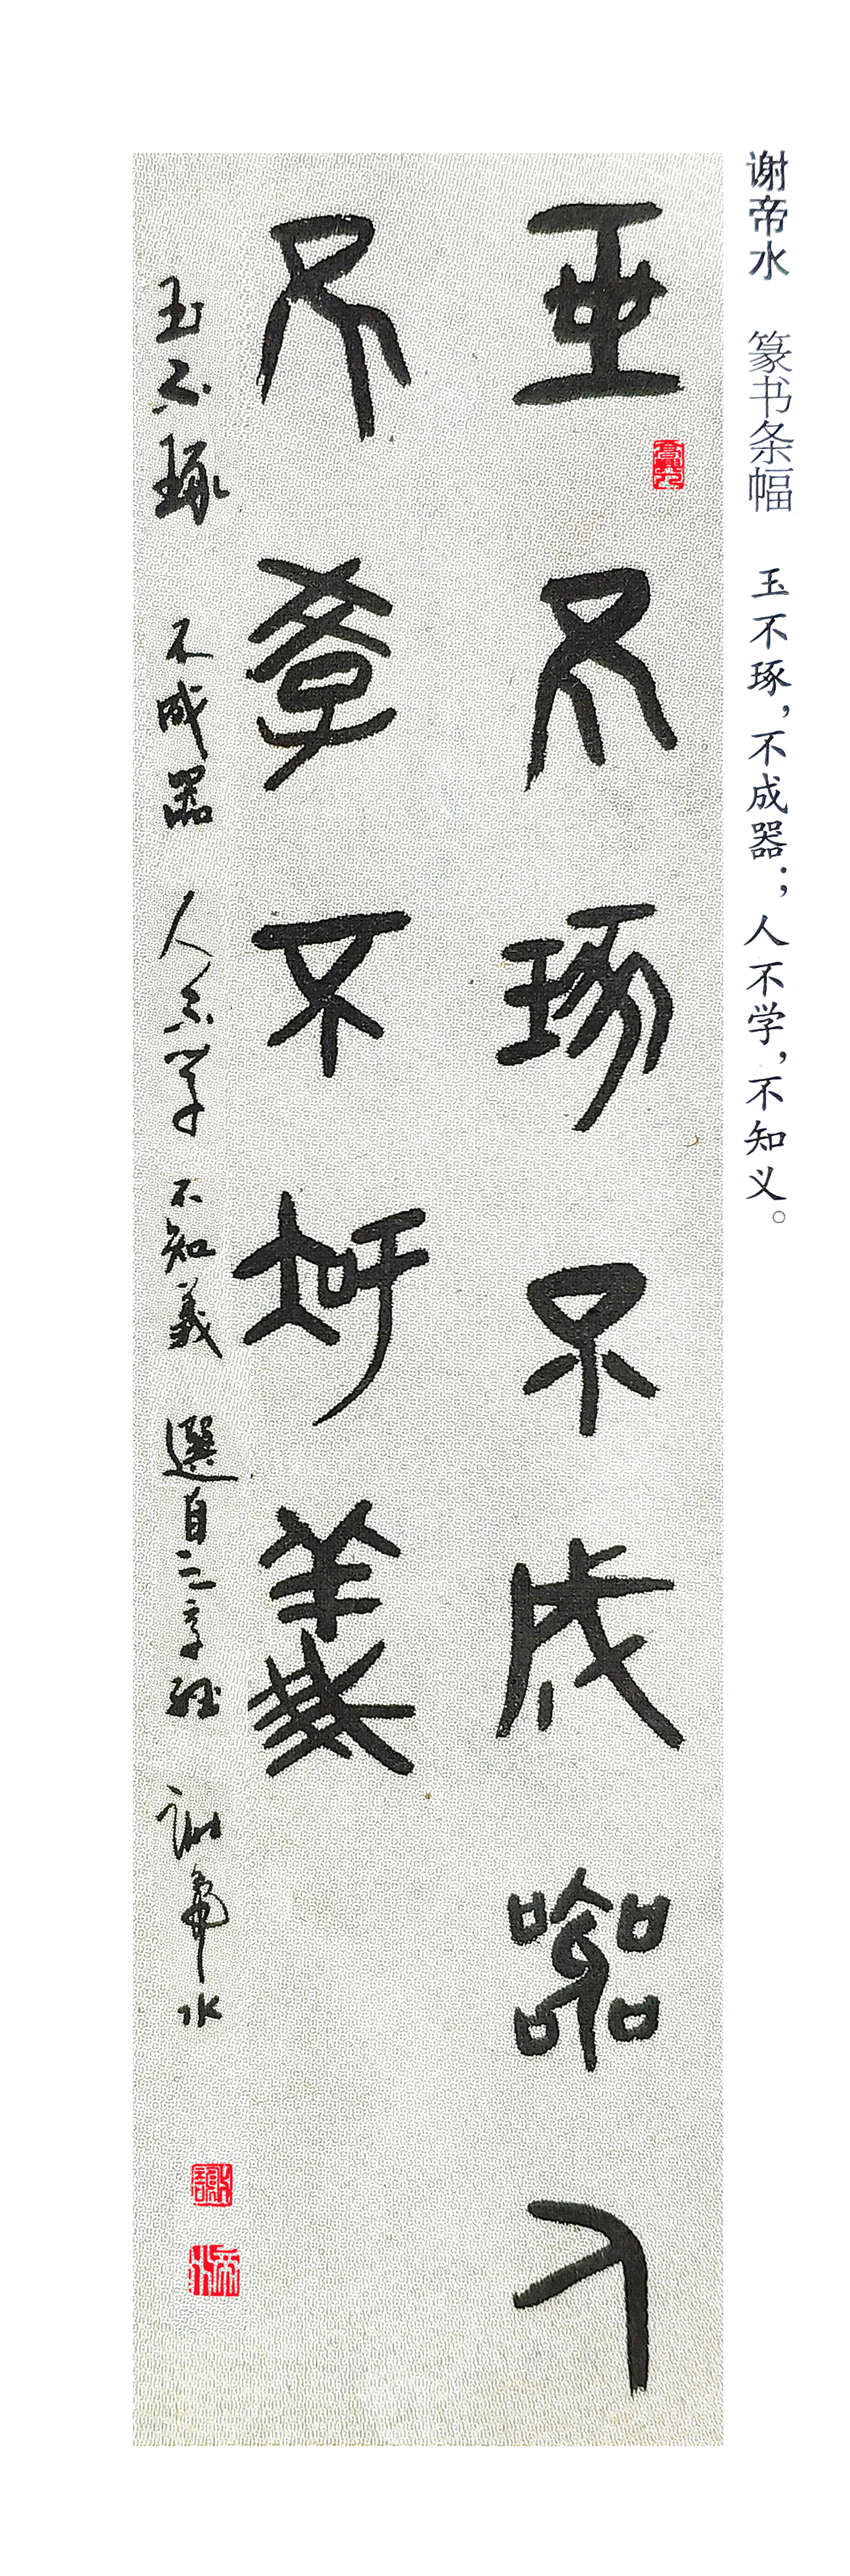 谢帝水 篆书条幅 玉不琢，不成器；人不学，不知义。
玉不琢不成器人
不學不知義
玉不琢 不成器 人不学 不知義 選自三字经 谢帝水